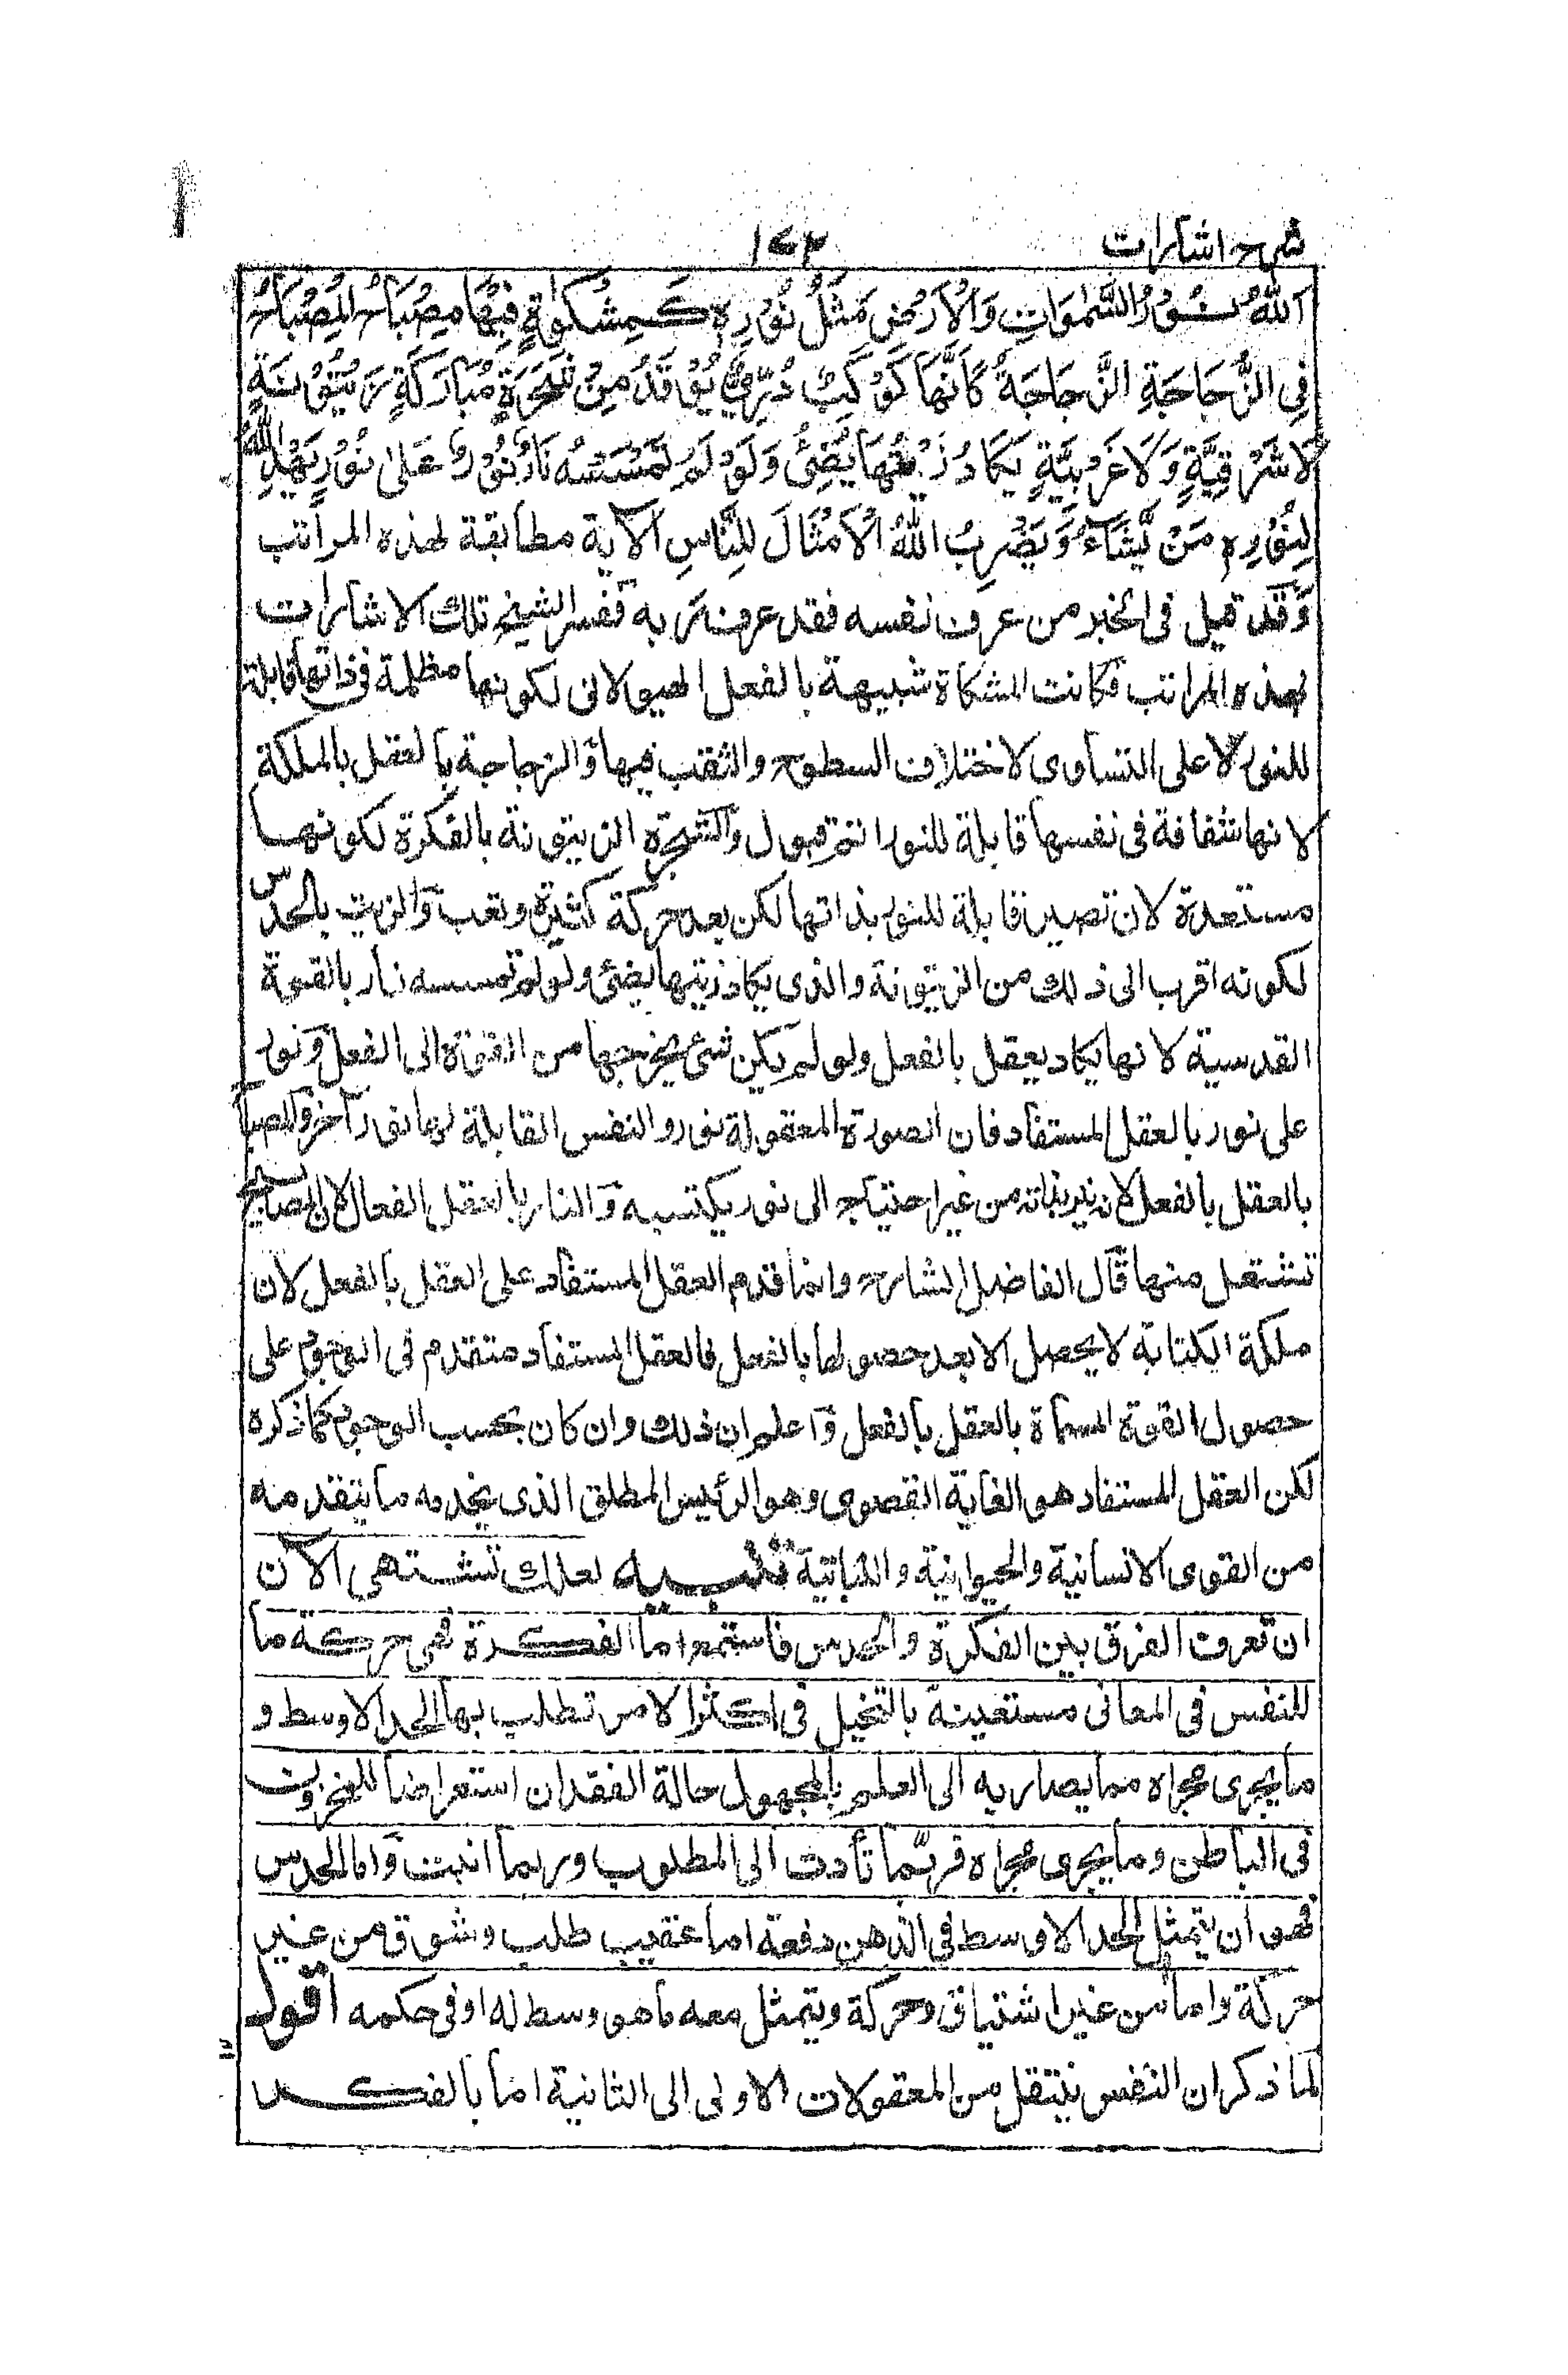 شرح اشارات
١٤٣
اَللهُ نُوْرُ السَّمٰوَاتِ وَالْاَرْضِ مَثَلُ نُوْرِهٖ كَمِشْكٰوةٍ فِيْهَا مِصْبَاحٌ الْمِصْبَاحُ
فِي الزُّجَاجَةِ الزُّجَاجَةُ كَاَنَّهَا كَوْكَبٌ دُرِّيٌّ يُوْقَدُ مِنْ شَجَرَةٍ مُبَارَكَةٍ زَيْتُوْنَةٍ
لَا شَرْقِيَّةٍ وَلَا غَرْبِيَّةٍ يَكَادُ زَيْتُهَا يُضِيْئُ وَلَوْ لَمْ تَمْسَسْهُ نَارٌ نُوْرٌ عَلٰى نُوْرٍ يَهْدِى اللهُ
لِنُوْرِهٖ مَنْ يَّشَآءُ وَيَضْرِبُ اللهُ الْاَمْثَالَ لِلنَّاسِ الآية مطابقة لهذه المراتب
وقد قيل فى الخبر من عرف نفسه فقد عرف ربه ففسر الشيخ تلك الاشارات
بهذه المراتب فكانت المشكاة شبيهة بالفعل الهيولانى لكونها مظلمة فى ذاتها قابلة
للنور لا على التساوى لاختلاف السطوح والثقب فيها والزجاجة بالعقل بالملكة
لانها شفافة فى نفسها قابلة للنور اتم قبول والشجرة الزيتونة بالفكرة لكونها
مستعدة لان تصير قابلة للنور بذاتها لكن بعد حركة كثيرة وتعب والزيت بالحدس
لكونه اقرب الى ذلك من الزيتونة والذى يكاد زيتها يضئ ولو لم تمسسه نار بالقوة
القدسية لانها يكاد يعقل بالفعل ولو لم يكن شئ يخرجها من القوة الى الفعل ونور
على نور بالعقل المستفاد فان الصورة المعقولة نور والنفس القابلة لها نور آخر والمصباح
بالعقل بالفعل لانه نير بذاته من غير احتياج الى نور يكتسبه والنار بالعقل الفعال لان المصابيح
تشتعل منها قال الفاضل الشارح وانما قدم العقل المستفاد على العقل بالفعل لان
ملكة الكتابة لا يحصل الا بعد حصولها بالفعل فالعقل المستفاد متقدم فى الوجود على
حصول القوة المسماة بالعقل بالفعل واعلم ان ذلك وان كان بحسب الوجود كما ذكره
لكن العقل المستفاد هو الغاية القصوى وهو الرئيس المطلق الذى يخدمه ما يتقدمه
من القوى الانسانية والحيوانية والنباتية تنبيه لعلك تشتهى الآن
ان تعرف الفرق بين الفكرة والحدس فاستمع اما الفكرة فهى حركة ما
للنفس فى المعانى مستعينة بالتخيل فى اكثر الامر تطلب بها الحد الاوسط و
ما يجرى مجراه مما يصار به الى العلم بالمجهول حالة الفقدان استعراضا للمخزون
فى الباطن وما يجرى مجراه فربما تأدت الى المطلوب وربما انبتت واما الحدس
فهو ان يتمثل الحد الاوسط فى الذهن دفعة اما عقيب طلب وشوق من غير
حركة واما من غير اشتياق وحركة ويتمثل معه ما هو وسط له او فى حكمه اقول
لما ذكر ان النفس ينتقل من المعقولات الاولى الى الثانية اما بالفكر